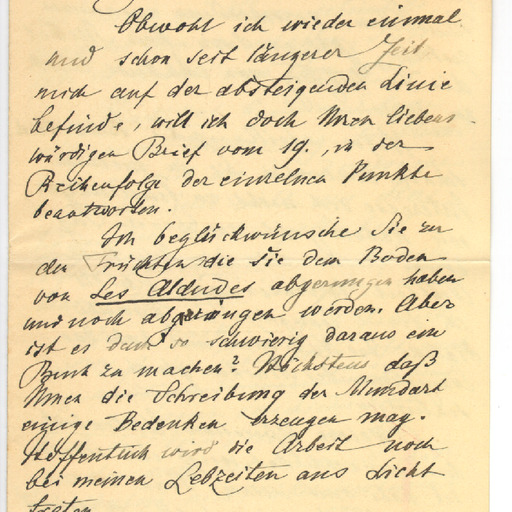 Obwohl ich wieder einmal
und schon seit längerer Zeit
mich auf der absteigenden Linie
befinde, will ich doch Ihren liebens-
würdigen Brief vom 19., in der
Reihenfolge der einzelnen Punkte
beantworten.
Ich beglückwünsche Sie zu
den Früchten die Sie dem Boden
von Les Aldudes abgerungen haben
und noch abgerungen werden. Aber
ist es denn so schwierig daraus ein
Buch zu machen? Höchstens daß
Ihnen die Schreibung der Mundart
einige Bedenken erzeugen mag.
Hoffentlich wird die Arbeit noch
bei meinen Lebzeiten ans Licht
treten